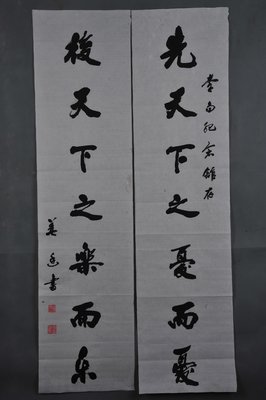 先天下之憂而憂
李白紀念館存
後天下之樂而乐
書